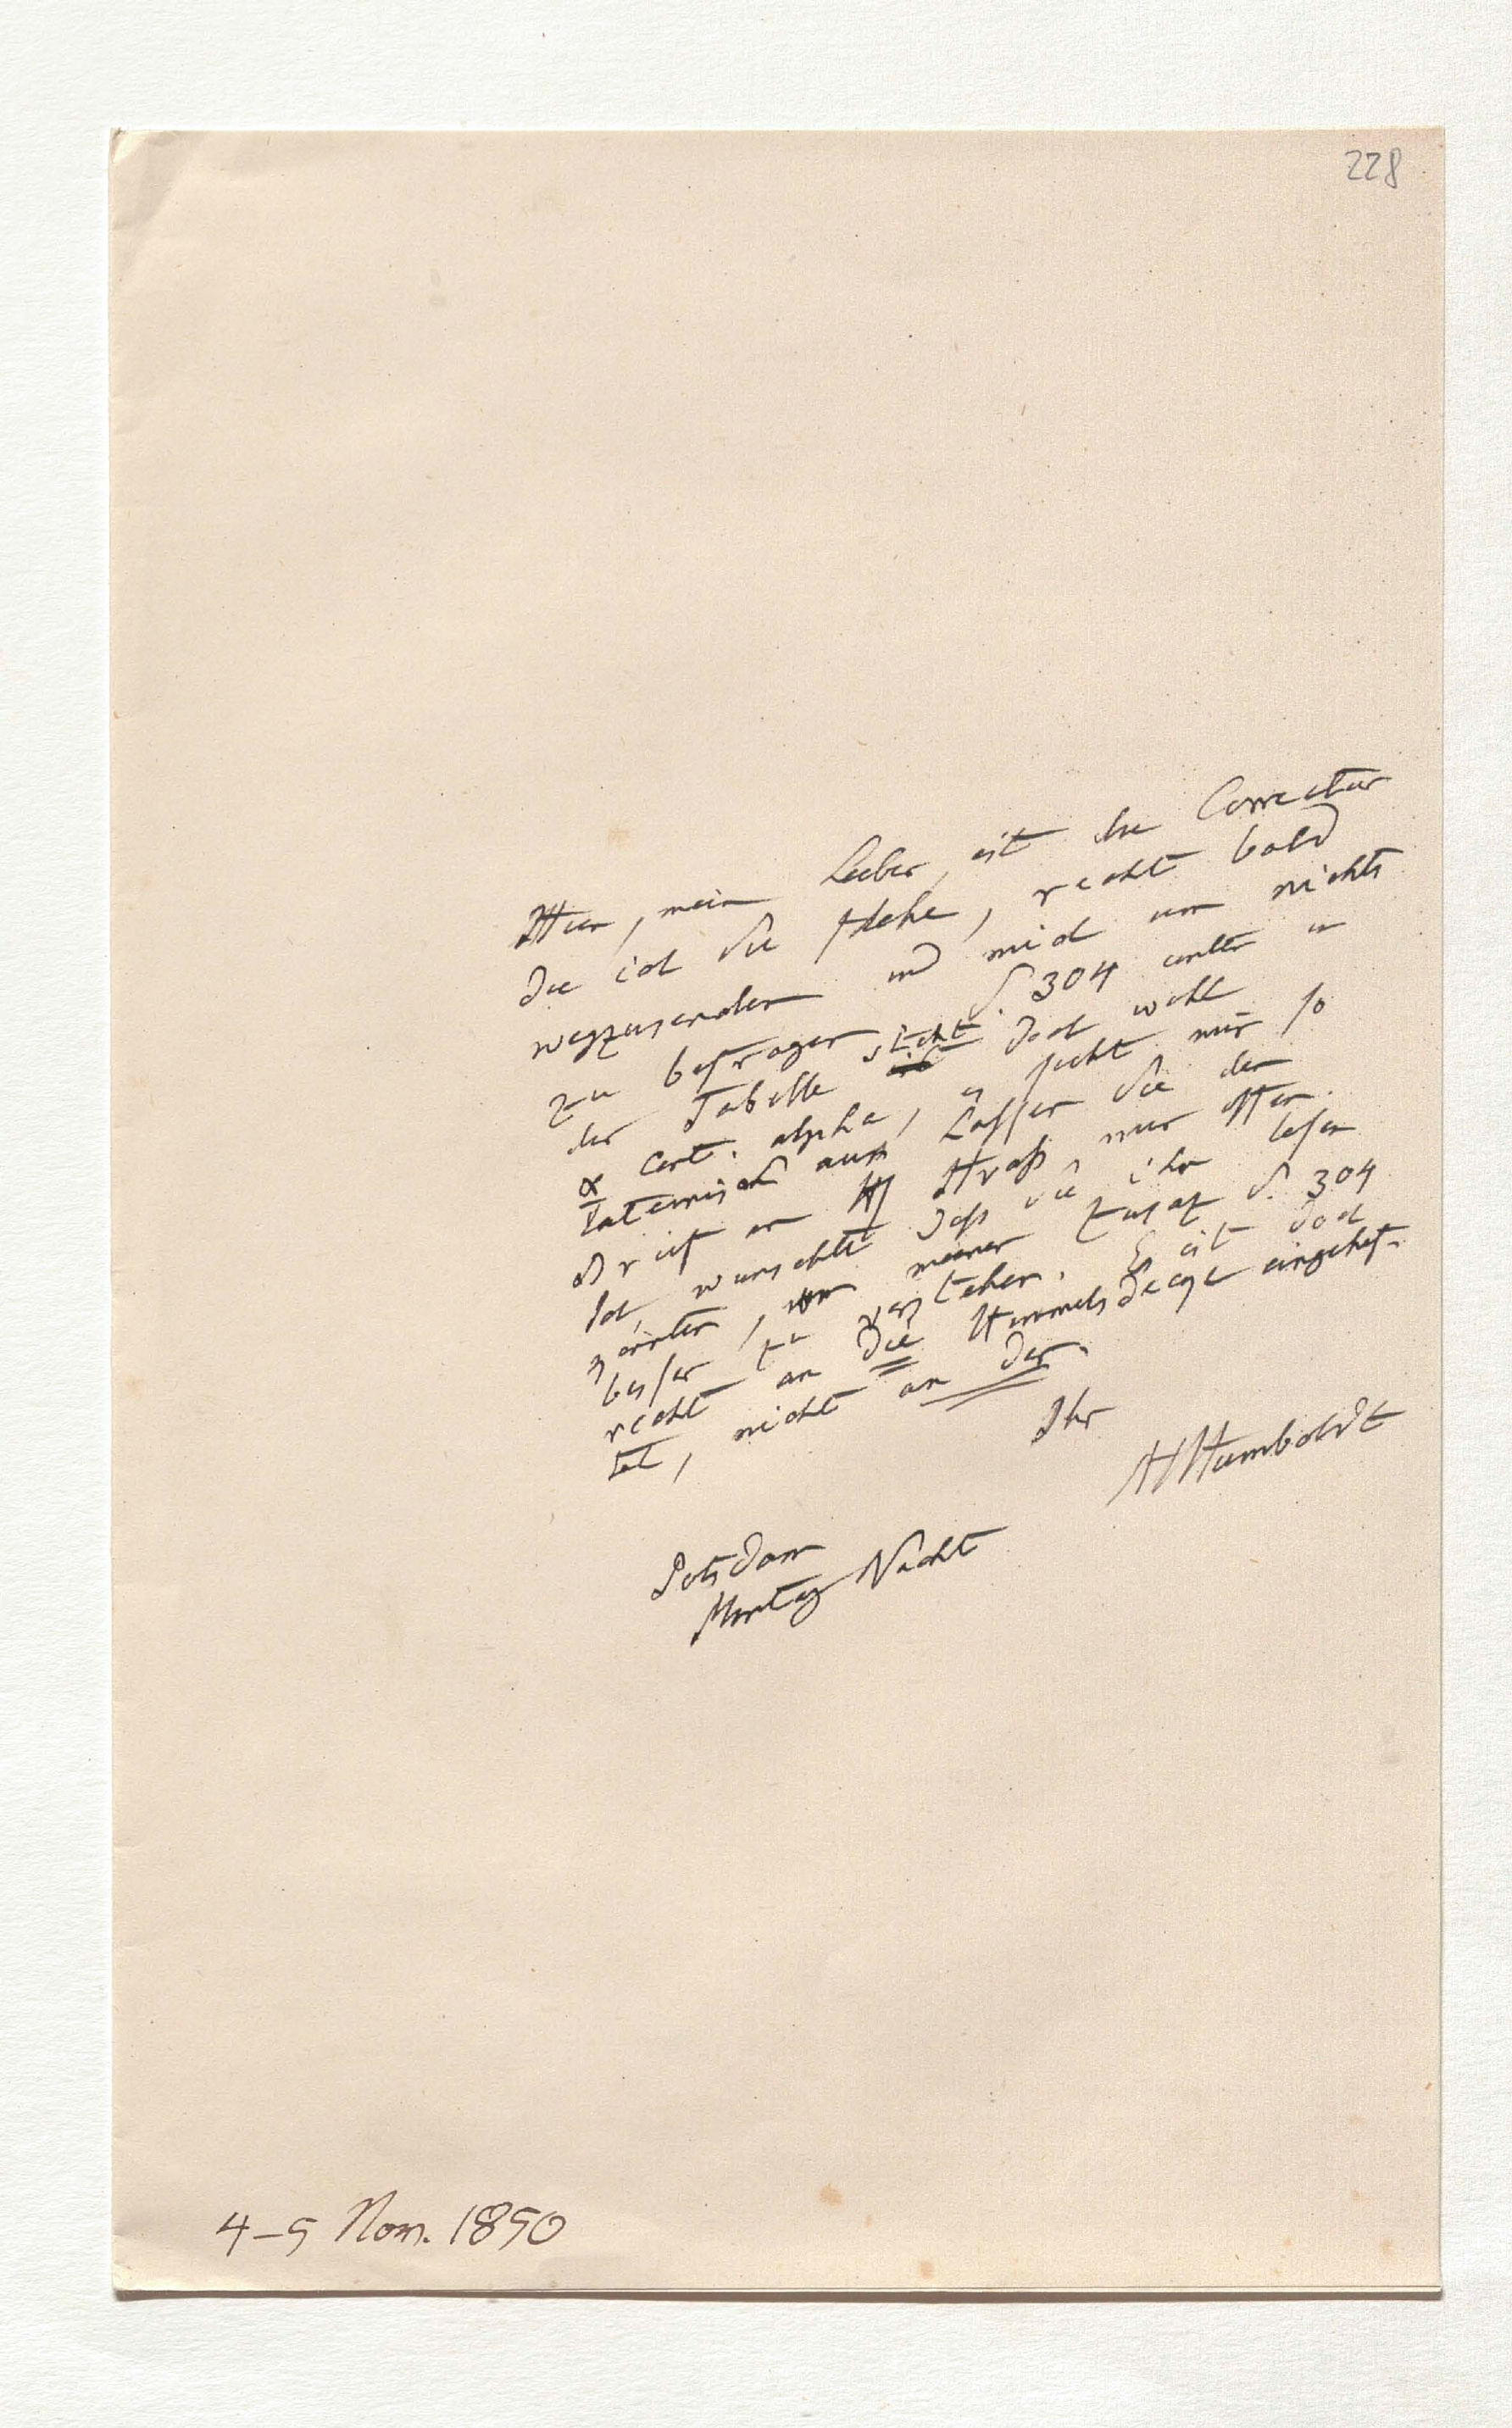 228
Hier, mein Lieber, ist die Correctur
die ich Sie flehe, recht bald
wegzusenden und mich um nichts
zu befragen. S. 304 unten in
der Tabelle steht doch wohl
α Cent. alpha, es sieht mir so
lateinisch aus. Lassen Sie den
Brief an H Prof. nur offen.
Ich wünschte daß Sie ihn lesen
könnten, um meinen Zusaz S. 304
besser zu verstehen. Es ist doch
recht an die Himmelsdecge eingehef-
tet, nicht an der.
Ihr
AHumboldt
Potsdam
Montag Nacht
4–5 Nov. 1850